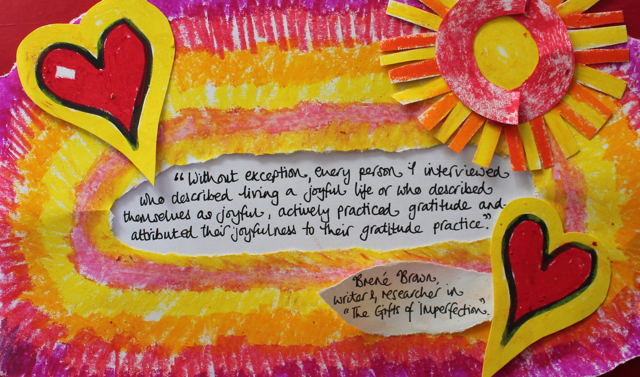 "Without exception, every person I interviewed
who described living a joyful life or who described
themselves as joyful, actively practiced gratitude and
attributed their joyfulness to their gratitude practice."
Brené Brown,
writer & researcher in
"The Gifts of Imperfection".